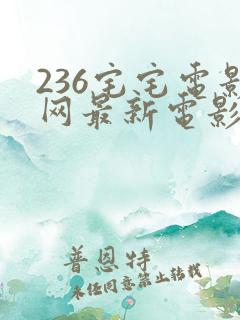 236宅宅電影
网最新電影
普恩特
未经同意禁止转载